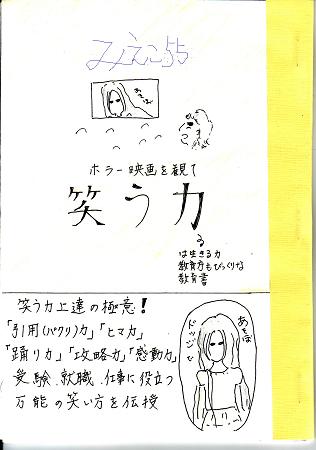 みえこ55
あそぼ
ホラー映画を観て
笑う力
る
は生きる力
教育庁もびっくりな
教育書
笑う力上達の極意!
「引用(パクリ)力」「ヒマ力」
「踊り力」「攻略力」「感動力」
受験、就職、仕事に役立つ
万能の笑い方を伝授
あそぼ